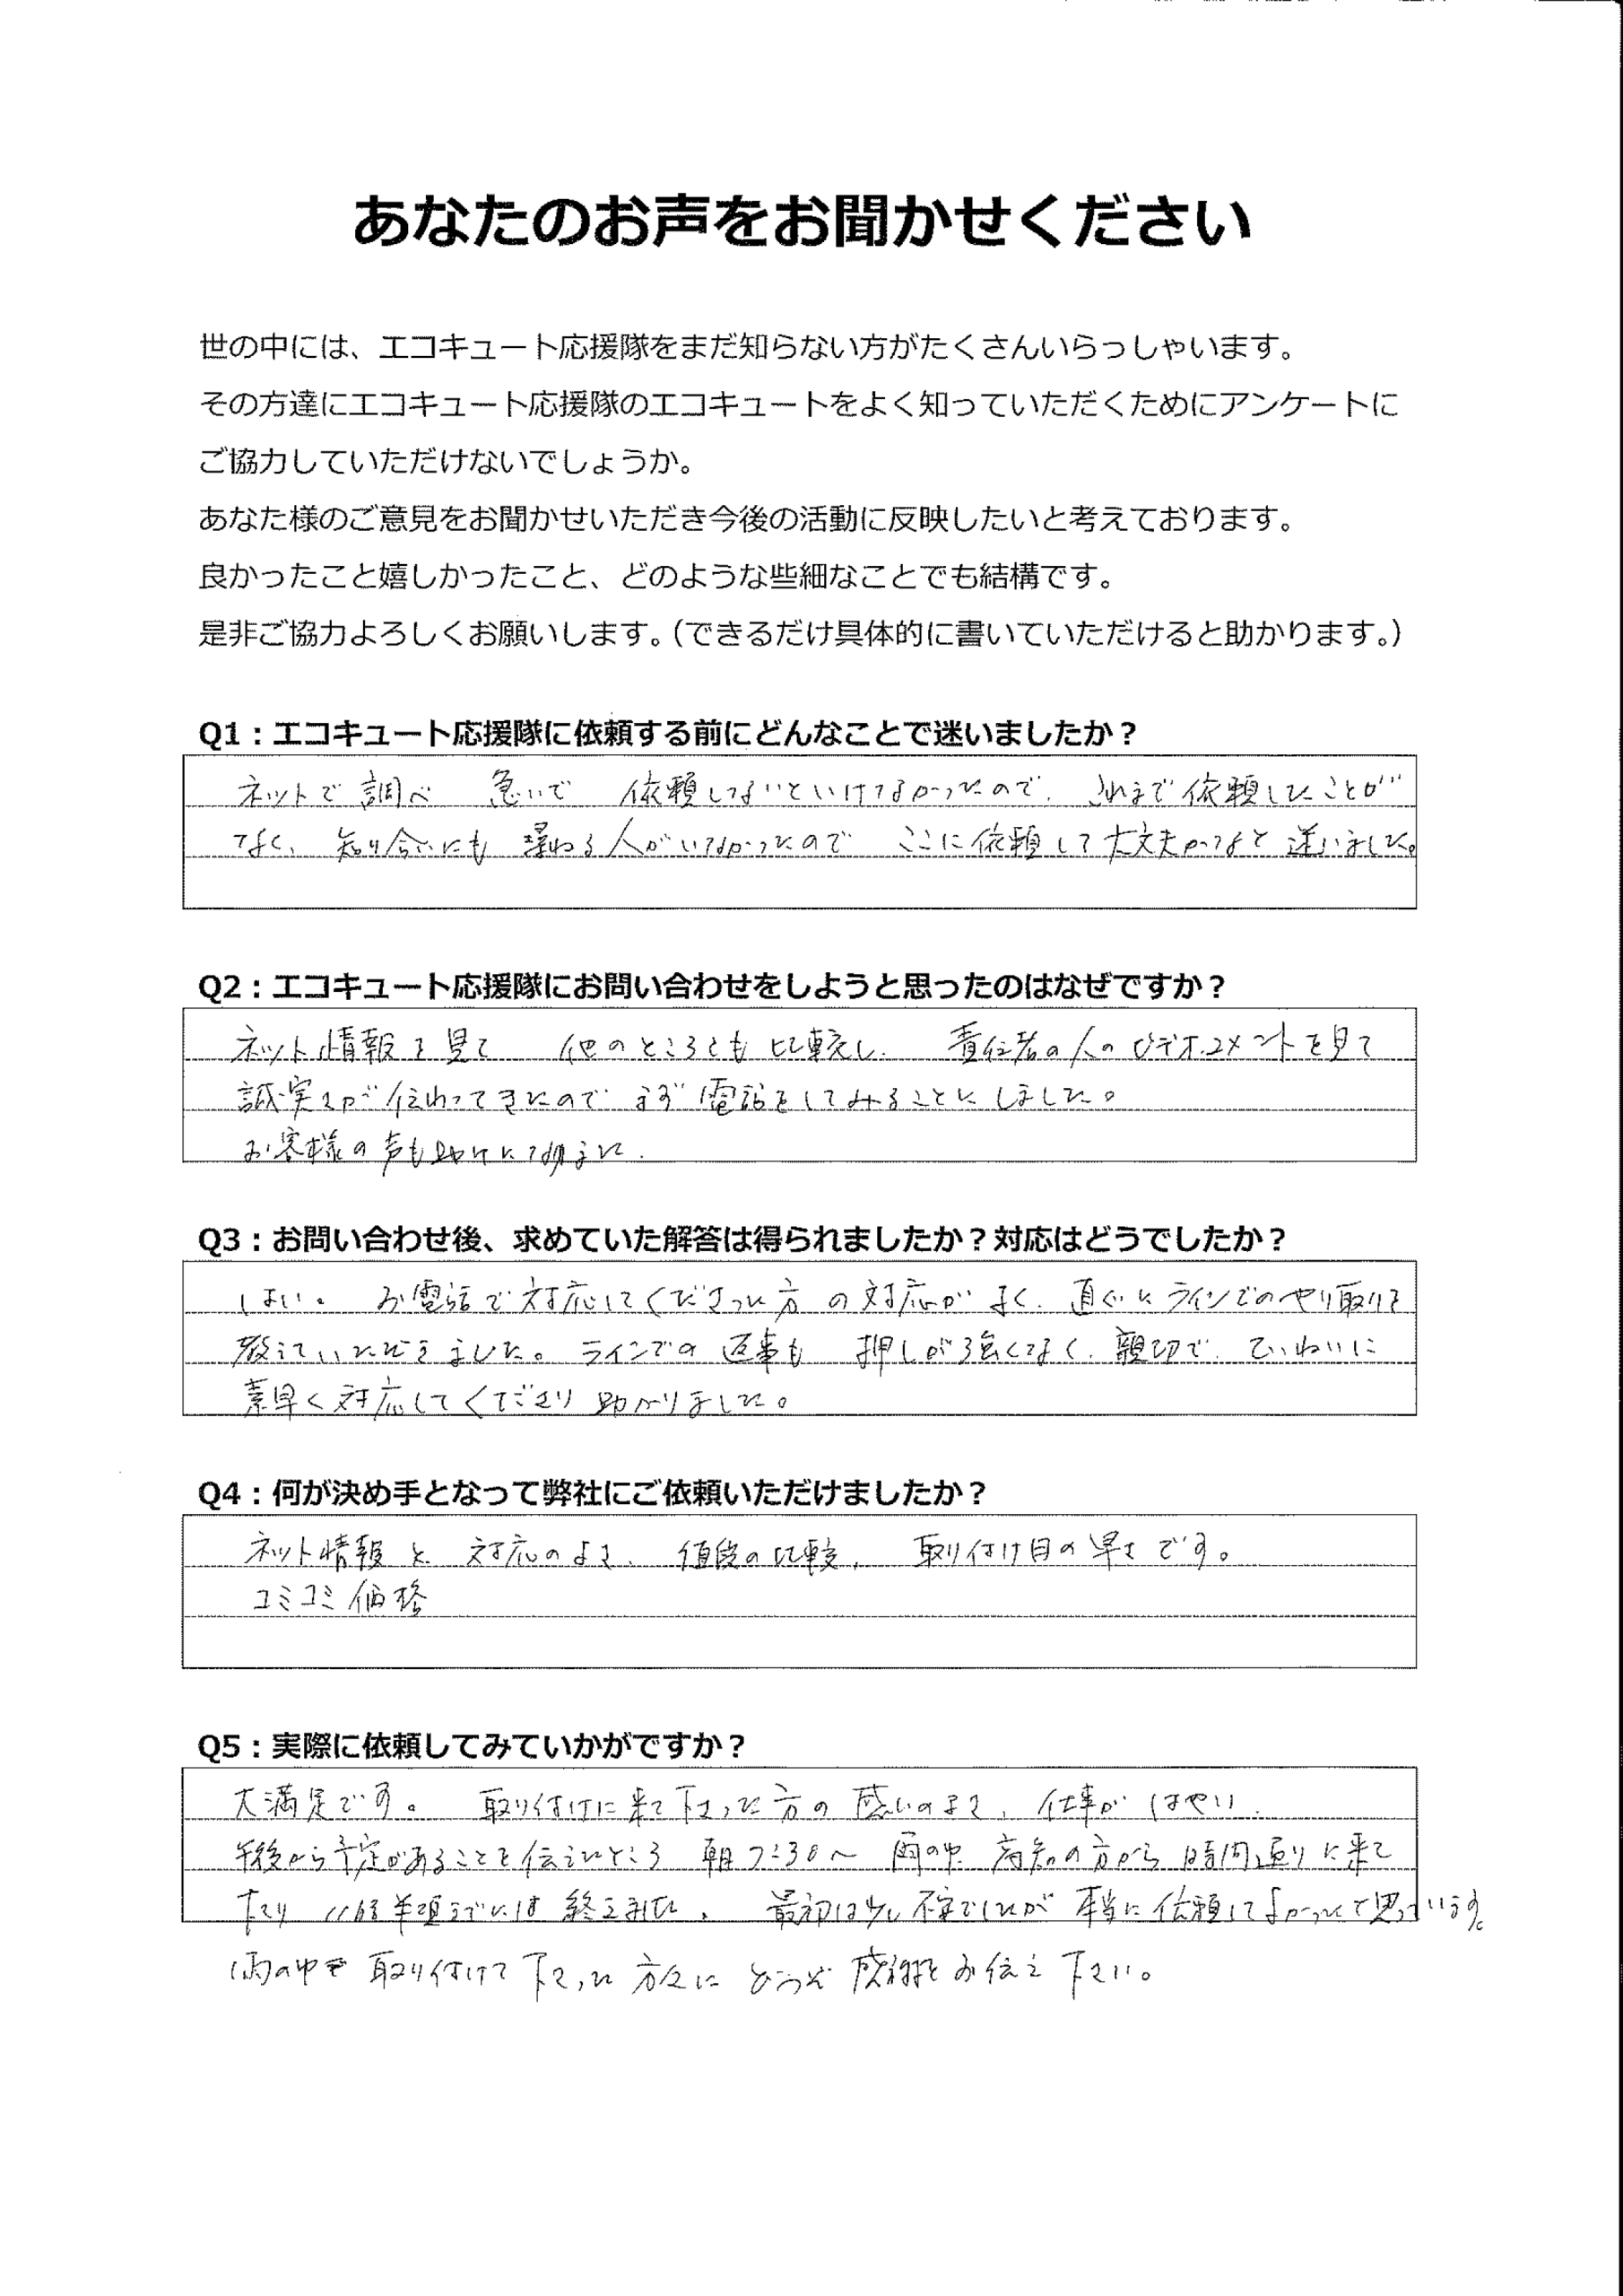 あなたのお声をお聞かせください
世の中には、エコキュート応援隊をまだ知らない方がたくさんいらっしゃいます。
その方達にエコキュート応援隊のエコキュートをよく知っていただくためにアンケートに
ご協力していただけないでしょうか。
あなた様のご意見をお聞かせいただき今後の活動に反映したいと考えております。
良かったこと嬉しかったこと、どのような些細なことでも結構です。
是非ご協力よろしくお願いします。（できるだけ具体的に書いていただけると助かります。）
Q1：エコキュート応援隊に依頼する前にどんなことで迷いましたか？
ネットで調べ 急いで 依頼しないといけなかったので、これまで依頼したことが
なく、知り合いにも 人がいなかったので ここに依頼して大丈夫かなと迷いました。
Q2：エコキュート応援隊にお問い合わせをしようと思ったのはなぜですか？
ネット情報を見て 他のところとも比較し、責任者の人のビデオコメントを見て
誠実さが伝わってきたので まず電話をしてみることにしました。
お客様の声も助けになりました。
Q3：お問い合わせ後、求めていた解答は得られましたか？対応はどうでしたか？
はい。お電話で対応してくださった方の対応がよく、直ぐにラインでのやり取りを
教えていただきました。ラインでの返事も 押しが強くなく、親切で、ていねいに
素早く対応してくださり助かりました。
Q4：何が決め手となって弊社にご依頼いただけましたか？
ネット情報と、対応のよさ、値段の比較、取り付け日の早さです。
コミコミ価格
Q5：実際に依頼してみていかがですか？
大満足です。取り付けに来て下さった方の感じのよさ、仕事がはやい、
午後から予定があることを伝えたところ 朝7:30～ 雨の中 の方から時間通りに来て
下さり 11時半頃までには終えました。最初は少し不安でしたが 本当に依頼してよかったと思っています。
雨の中で取り付けて下さった方々に どうぞ感謝をお伝え下さい。